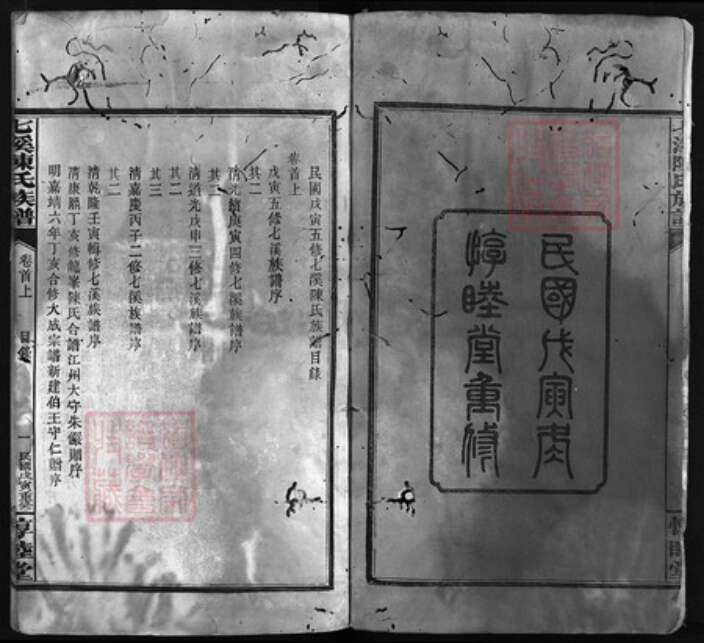 民國戊寅年
惇睦堂重修
民國戊寅五修七溪陳氏族譜目錄
卷首上
戊寅五修七溪族譜序
其二
清光緒庚寅四修七溪族譜序
其二
清道光戊申三修七溪族譜序
其二
其三
清嘉慶丙子二修七溪族譜序
其二
清乾隆壬寅輯修七溪族譜序
清康熙丁亥修龍峯陳氏合譜江州大守朱儼
明嘉靖六年丁亥合修大成宗譜新建伯王守仁贈序
七溪陳氏族譜
卷首上
目錄
一
民國戊寅重修
惇睦堂